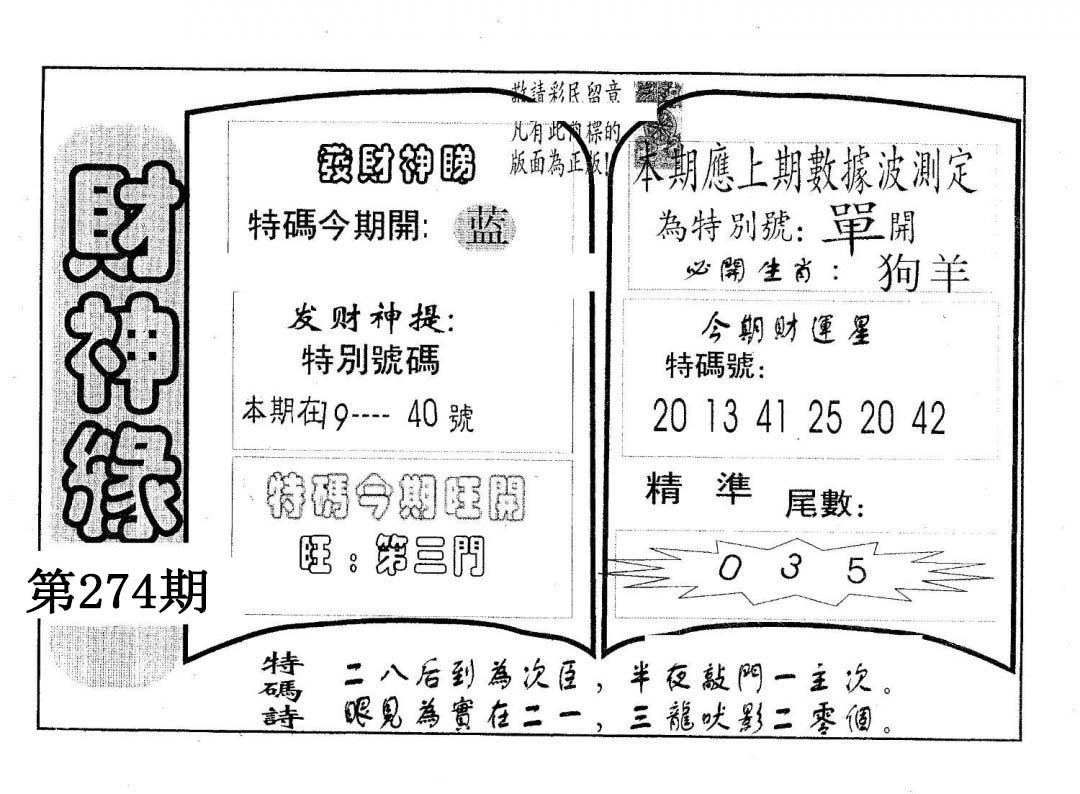 財神緣
第274期
敬請彩民留意
凡有此商標的
版面為正版!
發財神睇
特碼今期開: 蓝
发财神提:
特別號碼
本期在19---- 40號
特碼今期旺開
旺:第三門
本期應上期數據波測定
為特別號: 單開
必開生肖: 狗羊
今期財運星
特碼號:
20 13 41 25 20 42
精準 尾數:
0 3 5
特碼詩
二八后到為次臣,半夜敲門一主次。
眼見為實在二一,三龍吠影二零個。